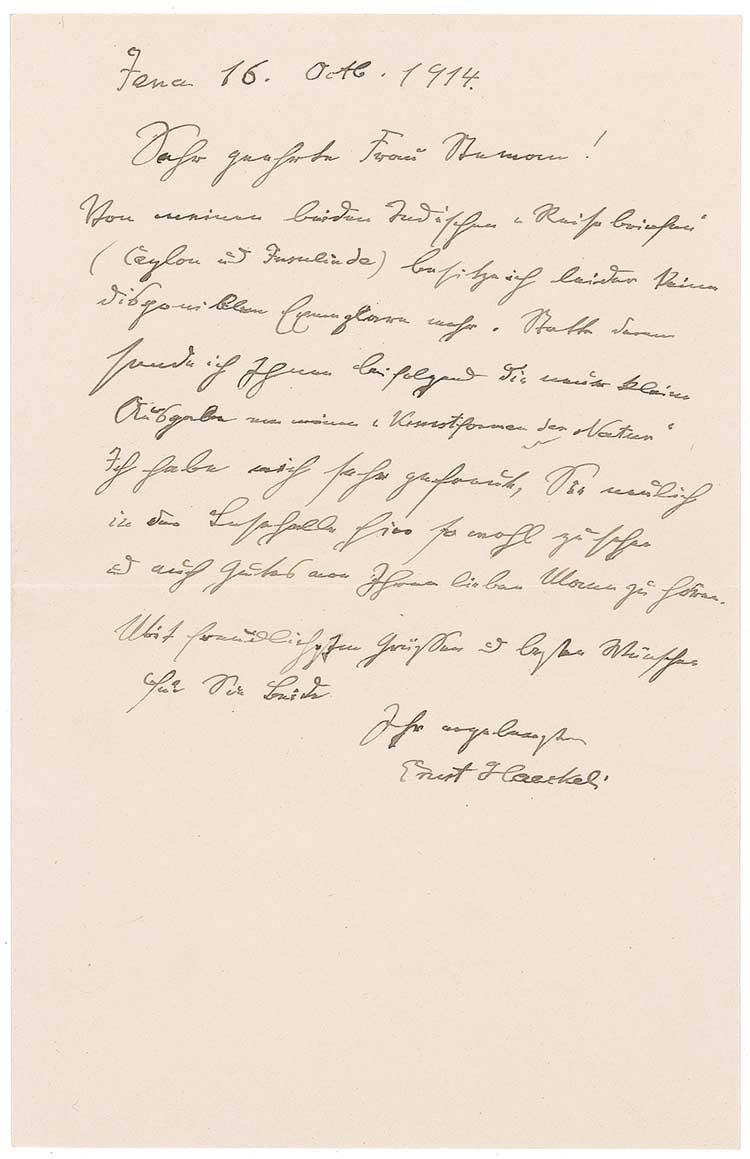 Jena 16. Octb. 1914.
Sehr geehrte Frau
Von meinen beiden Indischen „Reisebriefen“
(Ceylon ud Insulinde) besitze ich leider keine
disponiblen Exemplare mehr. Statt deren
sende ich Ihnen beifolgend die neue kleine
Ausgabe von meinen „Kunstformen der Natur“
Ich habe mich sehr gefreut, Sie neulich
in der Lesehalle hier so wohl zu sehen
ud auch Gutes von Ihrem lieben Mann zu hören.
Mit freundlichsten Grüßen ud besten Wünschen
für Sie Beide
Ihr ergebenster
Ernst Haeckel.